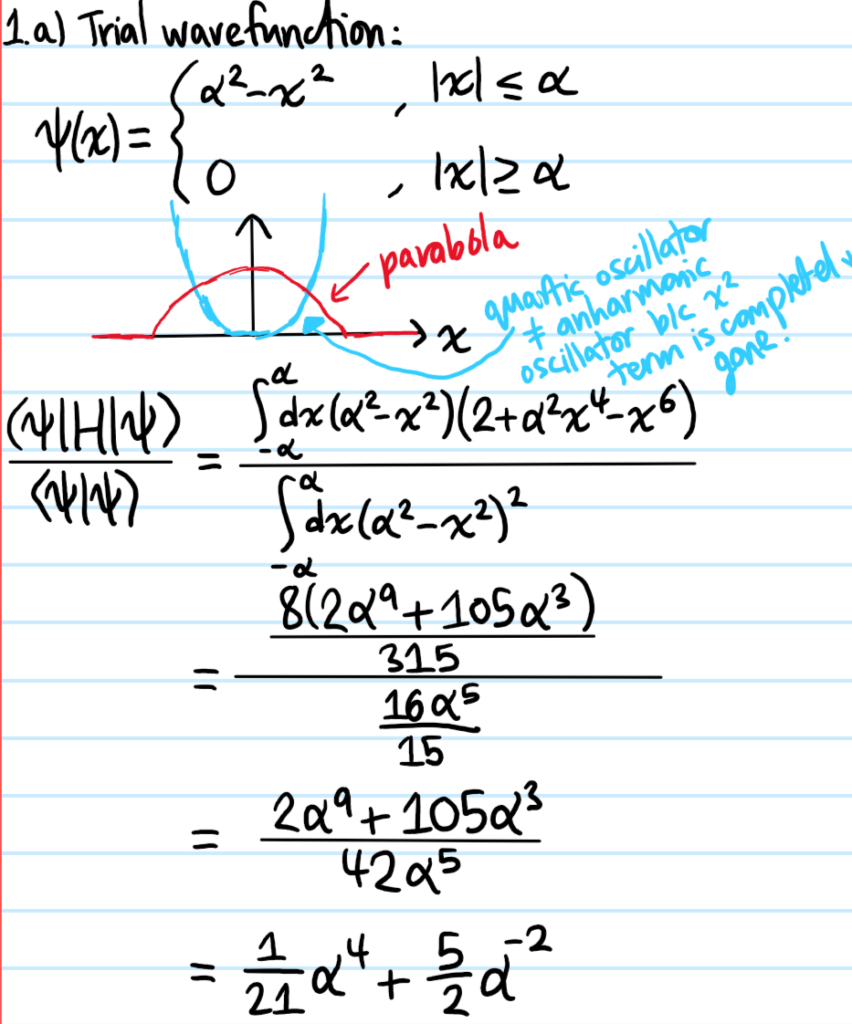 1.a) Trial wavefunction:
ψ(x) = { α² - x² , |x| ≤ α
0 , |x| ≥ α
parabola
quartic oscillator
≠ anharmonic
oscillator b/c x²
term is completely
gone.
x
⟨ψ|H|ψ⟩ / ⟨ψ|ψ⟩ = ∫_{-α}^{α} dx(α²-x²)(2+α²x⁴-x⁶) / ∫_{-α}^{α} dx(α²-x²)²
= (8(2α⁹+105α³) / 315) / (16α⁵ / 15)
= (2α⁹+105α³) / 42α⁵
= 1/21 α⁴ + 5/2 α⁻²